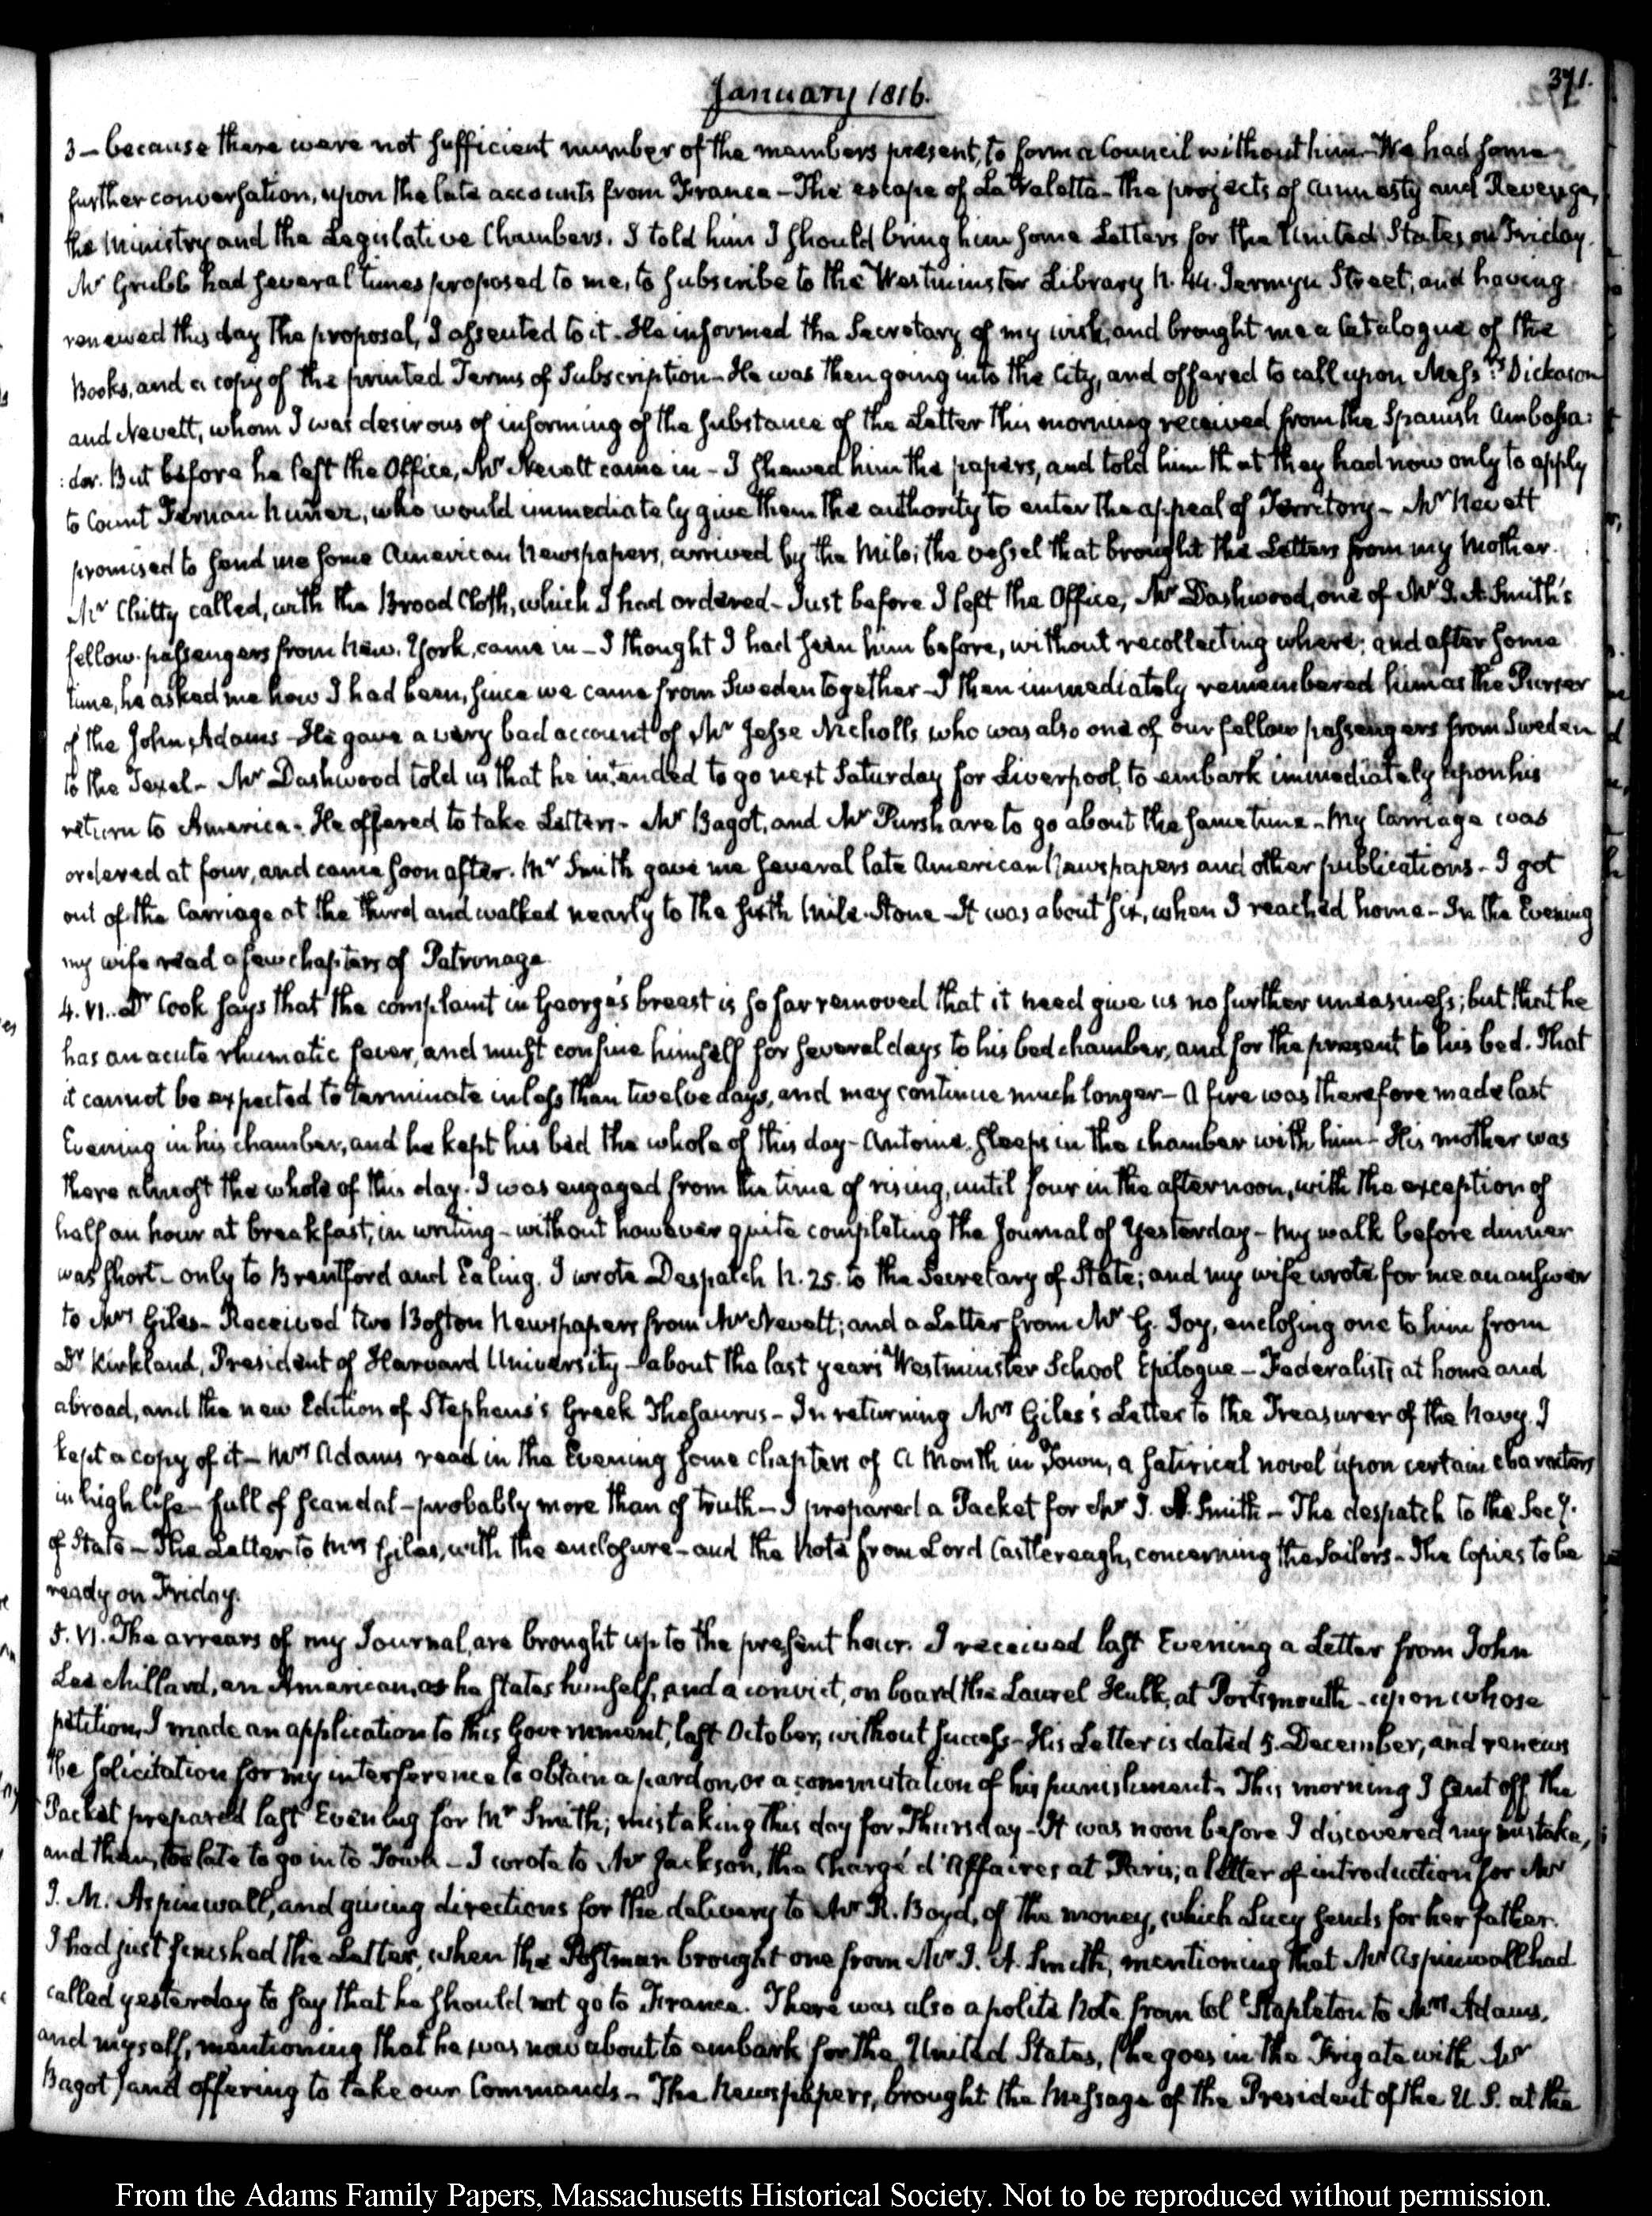 January 1816.
371.
3 – because there were not sufficient number of the members present, to form a Council without him – We had some
further conversation, upon the late accounts from France – The escape of La Valette – the projects of amnesty and Revenge,
the Ministry and the Legislative Chambers. I told him I should bring him some Letters for the United States, on Friday.
Mr Grubb had several times proposed to me, to subscribe to the Westminster Library N. 44. Jermyn Street; and having
renewed this day the proposal, I assented to it – He informed the Secretary of my wish, and brought me a Catalogue of the
Books, and a copy of the printed Terms of Subscription – He was then going into the City, and offered to call upon Messrs. Dickason
and Nevett, whom I was desirous of informing of the substance of the Letter this morning received from the Spanish Ambassa:
:dor. But before he left the Office, Mr Nevett came in – I shewed him the papers, and told him that they had now only to apply
to Count Fernan Nuñez, who would immediately give them the authority to enter the appeal of Territory – Mr Nevett
promised to send me some American Newspapers, arrived by the Milo; the vessel that brought the Letters from my Mother.
Mr Chitty called, with the Brood Cloth, which I had ordered – Just before I left the Office, Mr Dashwood, one of Mr J. A. Smith's
fellow-passengers from New-York, came in – I thought I had seen him before, without recollecting where; and after some
time, he asked me how I had been, since we came from Sweden together – I then immediately remembered him as the Purser
of the John Adams – He gave a very bad account of Mr Jesse Nicholls, who was also one of our fellow passengers from Sweden
to the Texel – Mr Dashwood told us that he intended to go next Saturday for Liverpool, to embark immediately upon his
return to America – He offered to take Letters – Mr Bagot, and Mr Pursh are to go about the same time – My Carriage was
ordered at four, and came soon after. Mr Smith gave me several late American Newspapers and other publications – I got
out of the Carriage at the third and walked nearly to the sixth Mile-Stone – It was about six, when I reached home – In the Evening
my wife read a few chapters of Patronage.
4. VI. Dr Cook says that the complaint in George's breast is so far removed that it need give us no further uneasiness; but that he
has an acute rhumatic fever, and must confine himself for several days to his bed chamber, and for the present to his bed. That
it cannot be expected to terminate in less than twelve days, and may continue much longer – A fire was therefore made last
Evening in his chamber, and he kept his bed the whole of this day – Antoine sleeps in the chamber with him – His mother was
there almost the whole of this day. I was engaged from the time of rising, until four in the afternoon, with the exception of
half an hour at breakfast, in writing – without however quite completing the Journal of Yesterday – My walk before dinner
was short – only to Brentford and Ealing. I wrote Despatch N. 25. to the Secretary of State; and my wife wrote for me an answer
to Mrs Giles – Received two Boston Newspapers from Mr Nevett; and a Letter from Mr G. Joy, enclosing one to him from
Dr Kirkland, President of Harvard University – about the last year's Westminster School Epilogue – Federalists at home and
abroad, and the new Edition of Stephens's Greek Thesaurus – In returning Mrs Giles's Letter to the Treasurer of the Navy, I
kept a copy of it – Mrs Adams read in the Evening some chapters of A Month in Town, a satirical novel upon certain characters
in high life – full of scandal – probably more than of truth – I prepared a Packet for Mr J. A. Smith – The despatch to the Secy.
of State – The Letter to Mrs Giles, with the enclosure – and the Note from Lord Castlereagh, concerning the Sailors – The Copies to be
ready on Friday.
5. VI. The arrears of my Journal, are brought up to the present hour. I received last Evening a Letter from John
Lee Millard, an American, as he states himself, and a convict, on board the Laurel Hulk, at Portsmouth – upon whose
petition, I made an application to this Government, last October, without success – His Letter is dated 5. December, and renews
the solicitation for my interference to obtain a pardon, or a commutation of his punishment – This morning I sent off the
Packet prepared last Evening for Mr Smith; mistaking this day for Thursday – It was noon before I discovered my mistake,
and then, too late to go into Town – I wrote to Mr Jackson, the Chargé d'Affaires at Paris; a letter of introduction for Mr
J. M. Aspinwall, and giving directions for the delivery to Mr R. Boyd, of the money, which Lucy sends for her father.
I had just finished the Letter, when the Postman brought one from Mr J. A. Smith, mentioning that Mr Aspinwall had
called yesterday to say that he should not go to France. There was also a polite Note from Coll Stapleton to Mrs Adams,
and myself, mentioning that he was now about to embark for the United States, (he goes in the Frigate with Mr
Bagot) and offering to take our Commands – The Newspapers, brought the Message of the President of the U.S. at the
From the Adams Family Papers, Massachusetts Historical Society. Not to be reproduced without permission.